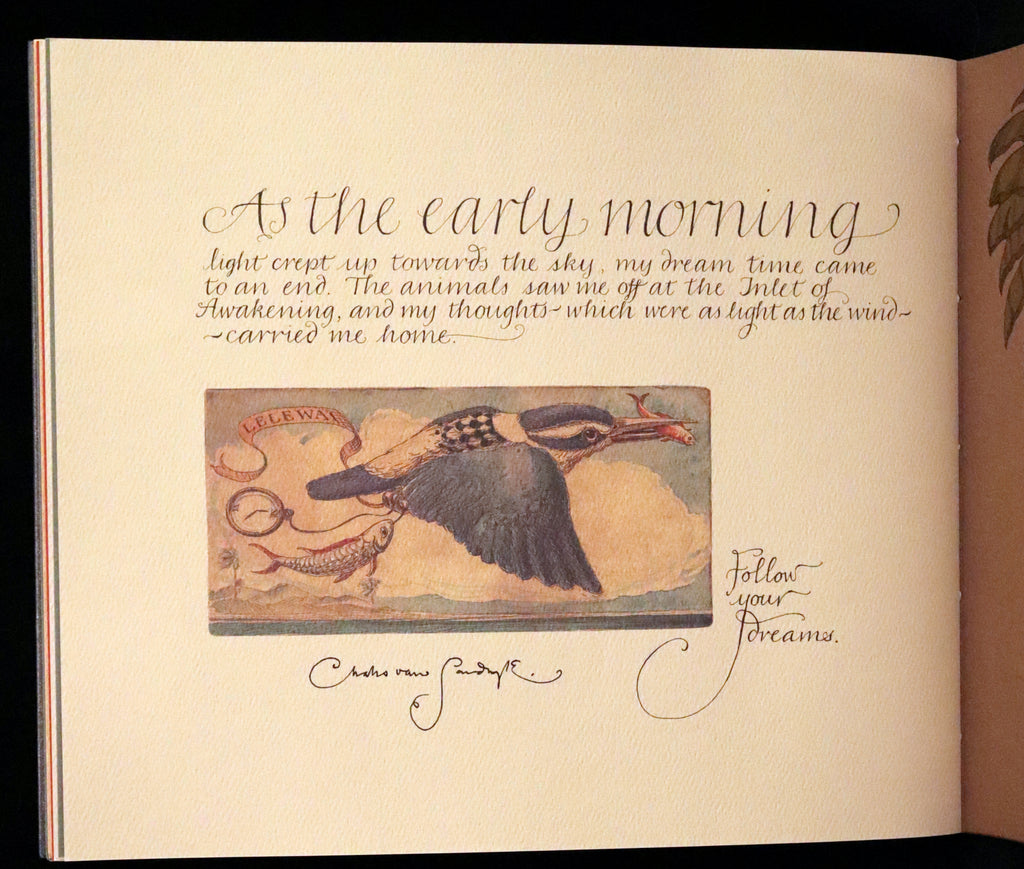 As the early morning
light crept up towards the sky, my dream time came
to an end. The animals saw me off at the Inlet of
Awakening, and my thoughts - which were as light as the wind -
- carried me home.
LELEWAN
Follow
your
dreams.
Charles van Sandwyk.